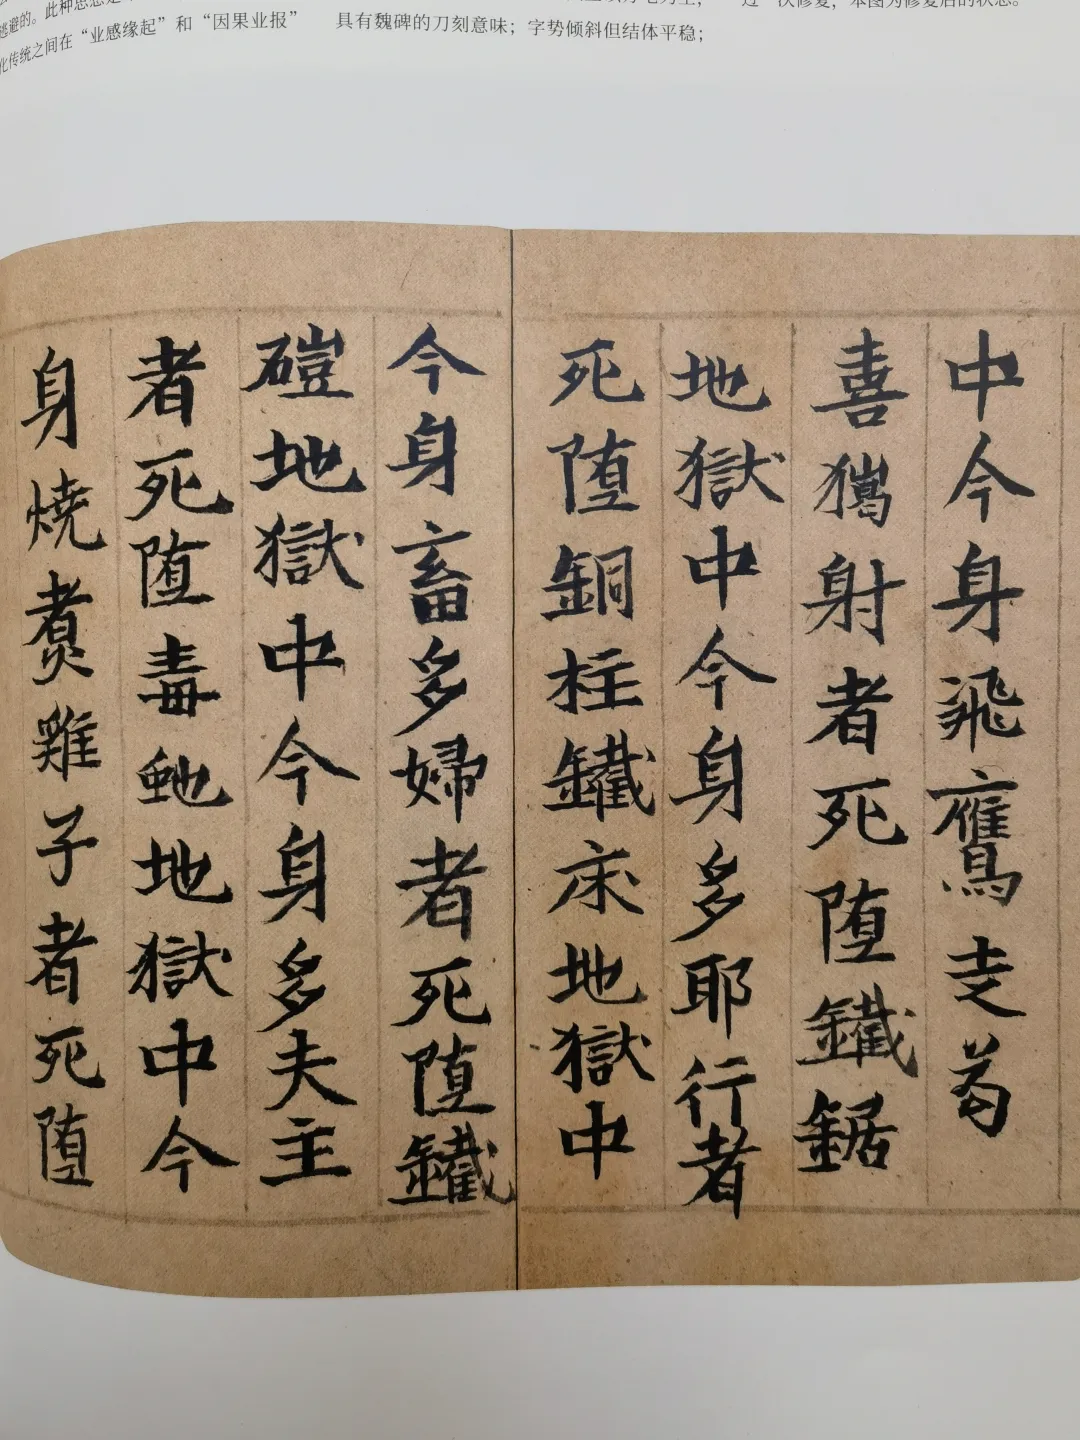 逃避的。此种思想是
化传统之间在“业感缘起”和“因果业报”
具有魏碑的刀刻意味；字势倾斜但结体平稳；
过一次修复，本图为修复后的状态。
中今身飛鷹走苟
喜獦射者死堕鐵鋸
地獄中今身多耶行者
死堕銅柱鐵床地獄中
今身畜多婦者死堕鐵
磑地獄中今身多夫主
者死堕毒虵地獄中今
身燒煑雞子者死堕